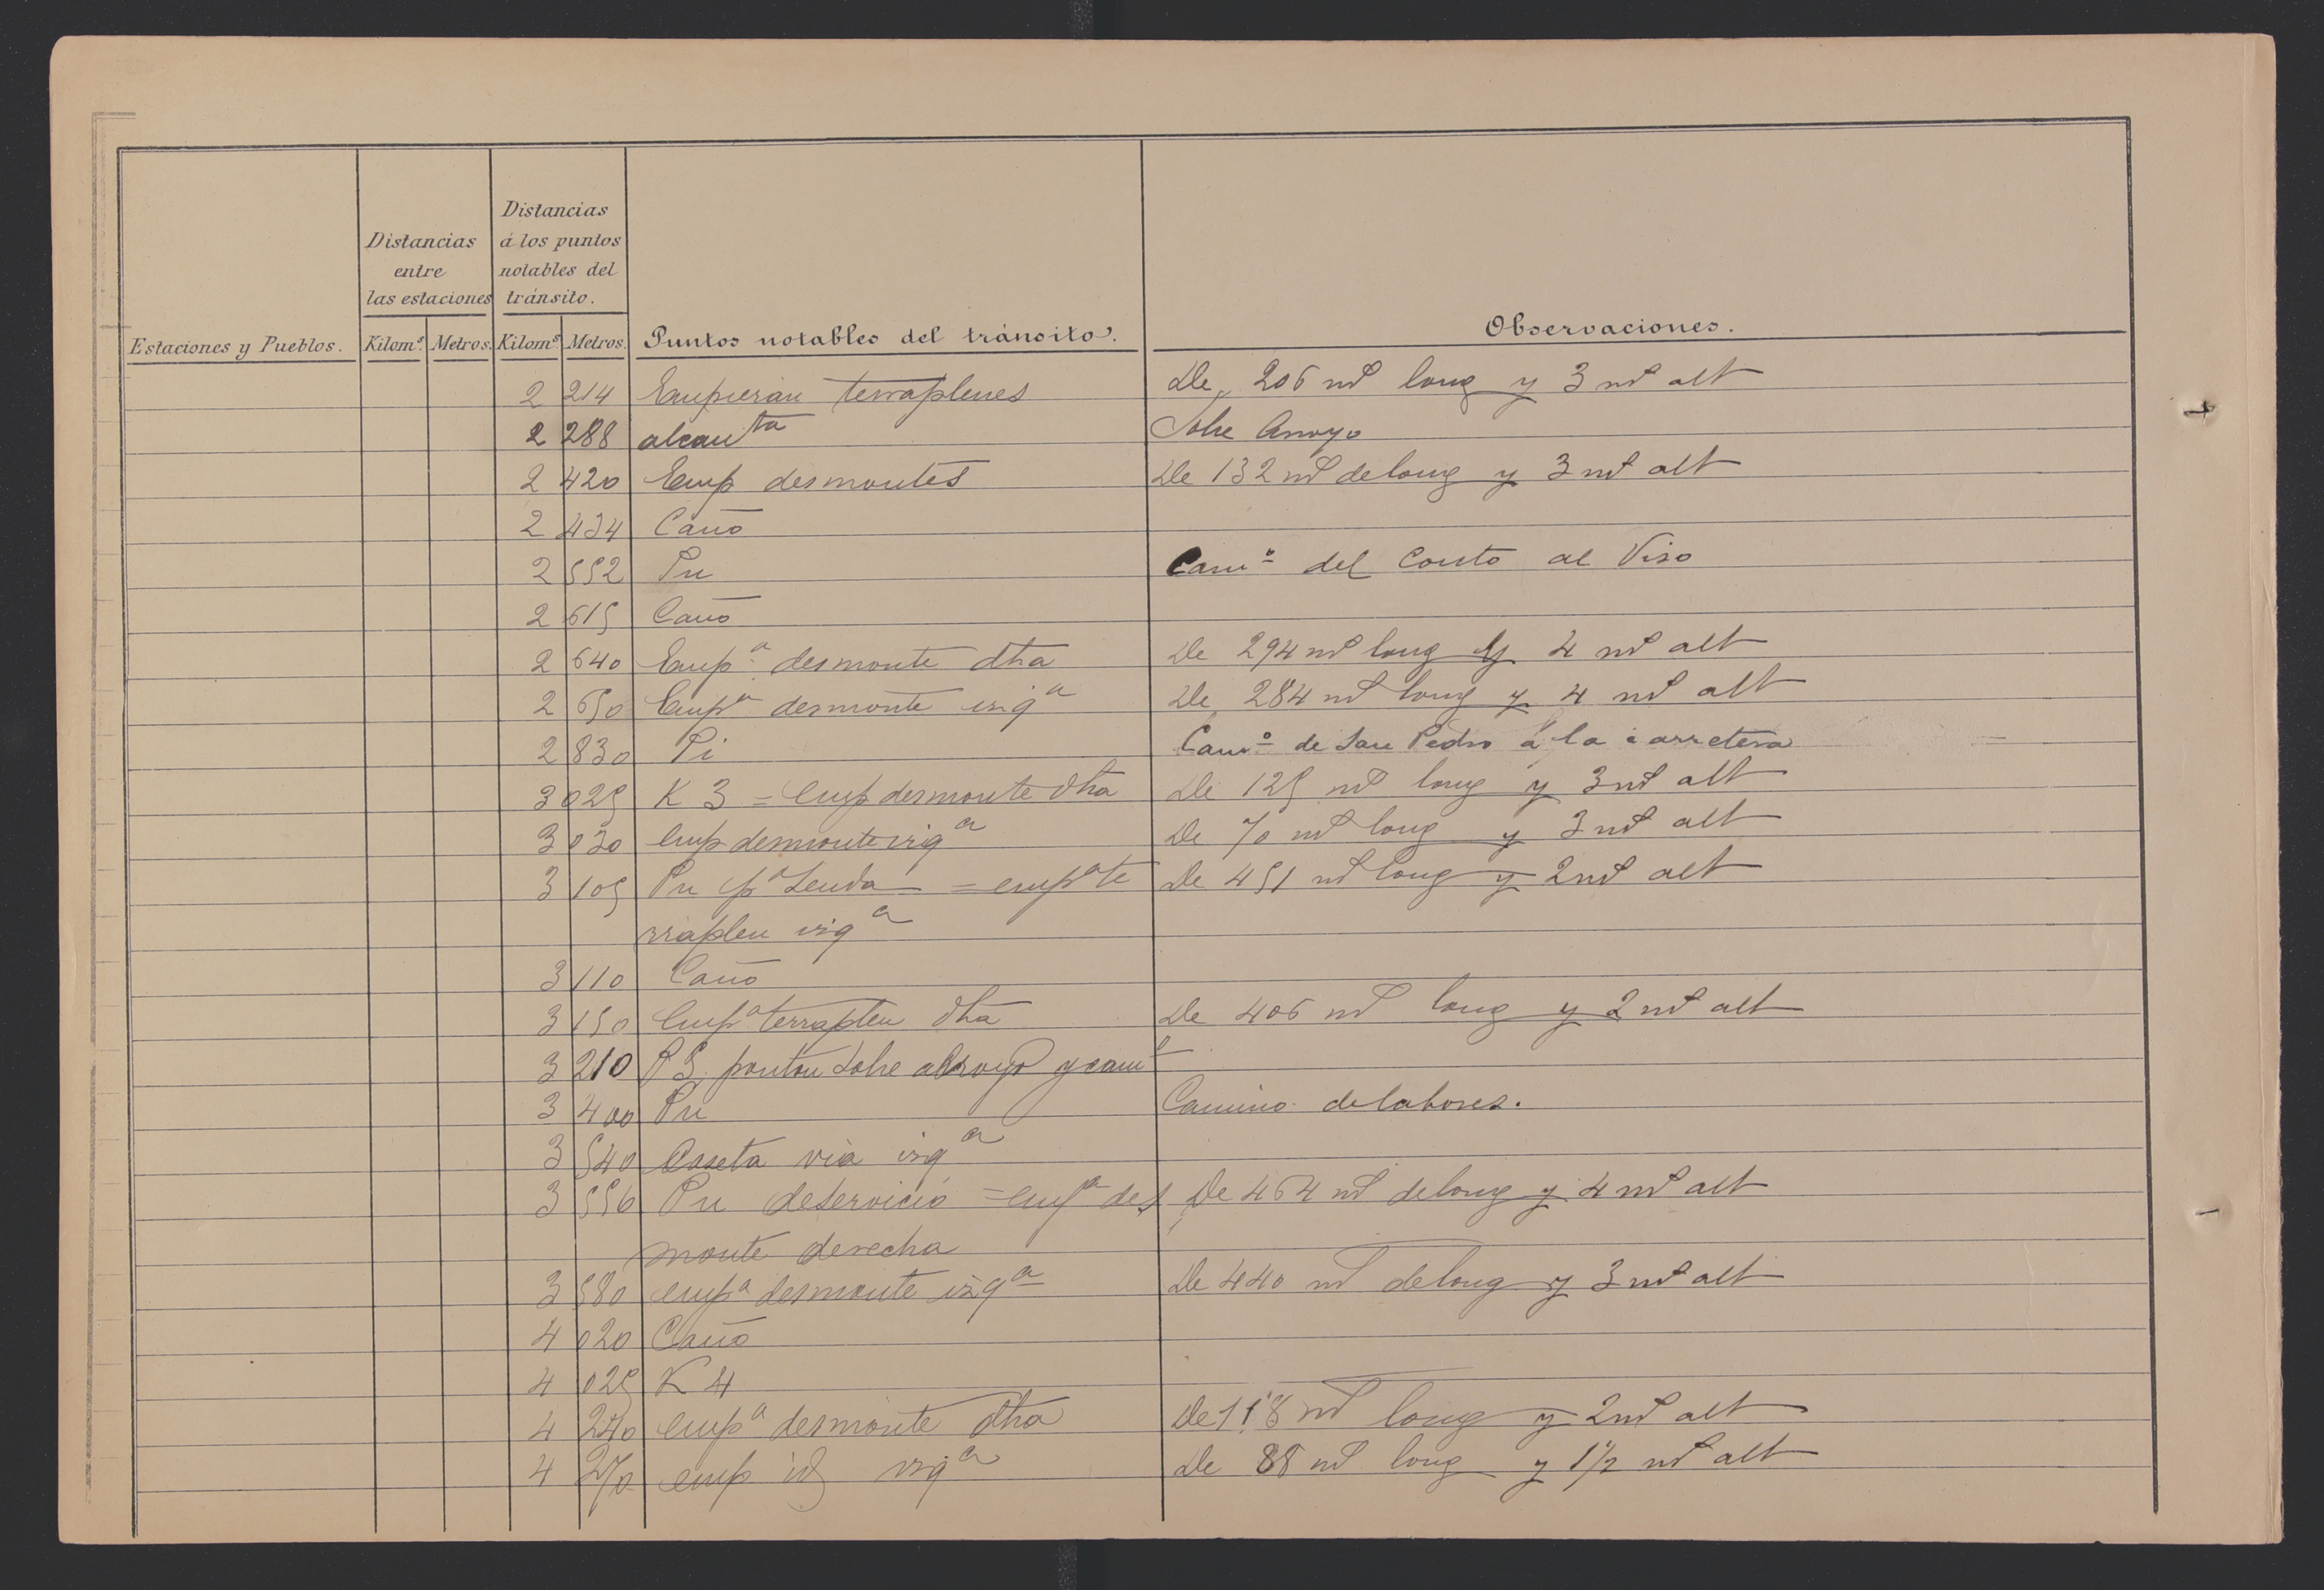 Distancias
á los puntos
notables del
tránsito.
Distancias
entre
las estaciones
Estaciones y Pueblos. Kilomˢ. Metros. Kilomˢ. Metros. Puntos notables del tránsito. Observaciones.
2 214 Empiezan terraplenes De 206 mtˢ long y 3 mtˢ alt
2 288 alcanᵗᵃ Sobre Arroyo
2 420 Emp desmontes De 132 mtˢ de long y 3 mtˢ alt
2 434 Caño
2 552 Pn Camº del Couto al Viso
2 615 Caño
2 640 Empª desmonte dha De 294 mtˢ long y 4 mtˢ alt
2 650 Empª desmonte izqª De 284 mtˢ long y 4 mtˢ alt
2 830 Pi Camº de San Pedro á la carretera
3 025 K 3 = Emp desmonte dha De 125 mtˢ long y 3 mtˢ alt
3 030 Emp desmonte izqª De 70 mtˢ long y 3 mtˢ alt
3 105 Pn pª Senda = empª te De 451 mtˢ long y 2 mtˢ alt
rraplen izqª
3 110 Caño
3 150 Empª terraplen dha De 406 mtˢ long y 2 mtˢ alt
3 210 P S. ponton sobre arroyo y camº
3 400 Pn Camino de labores.
3 540 Caseta via izqª
3 556 Pn de servicio = empª des De 464 mtˢ de long y 4 mtˢ alt
monte derecha
3 580 empª desmonte izqª De 440 mtˢ de long y 3 mtˢ alt
4 020 Caño
4 025 K 4
4 240 empª desmonte dha De 118 mtˢ long y 2 mtˢ alt
4 270 emp id izqª De 88 mtˢ long y 1 1/2 mtˢ alt